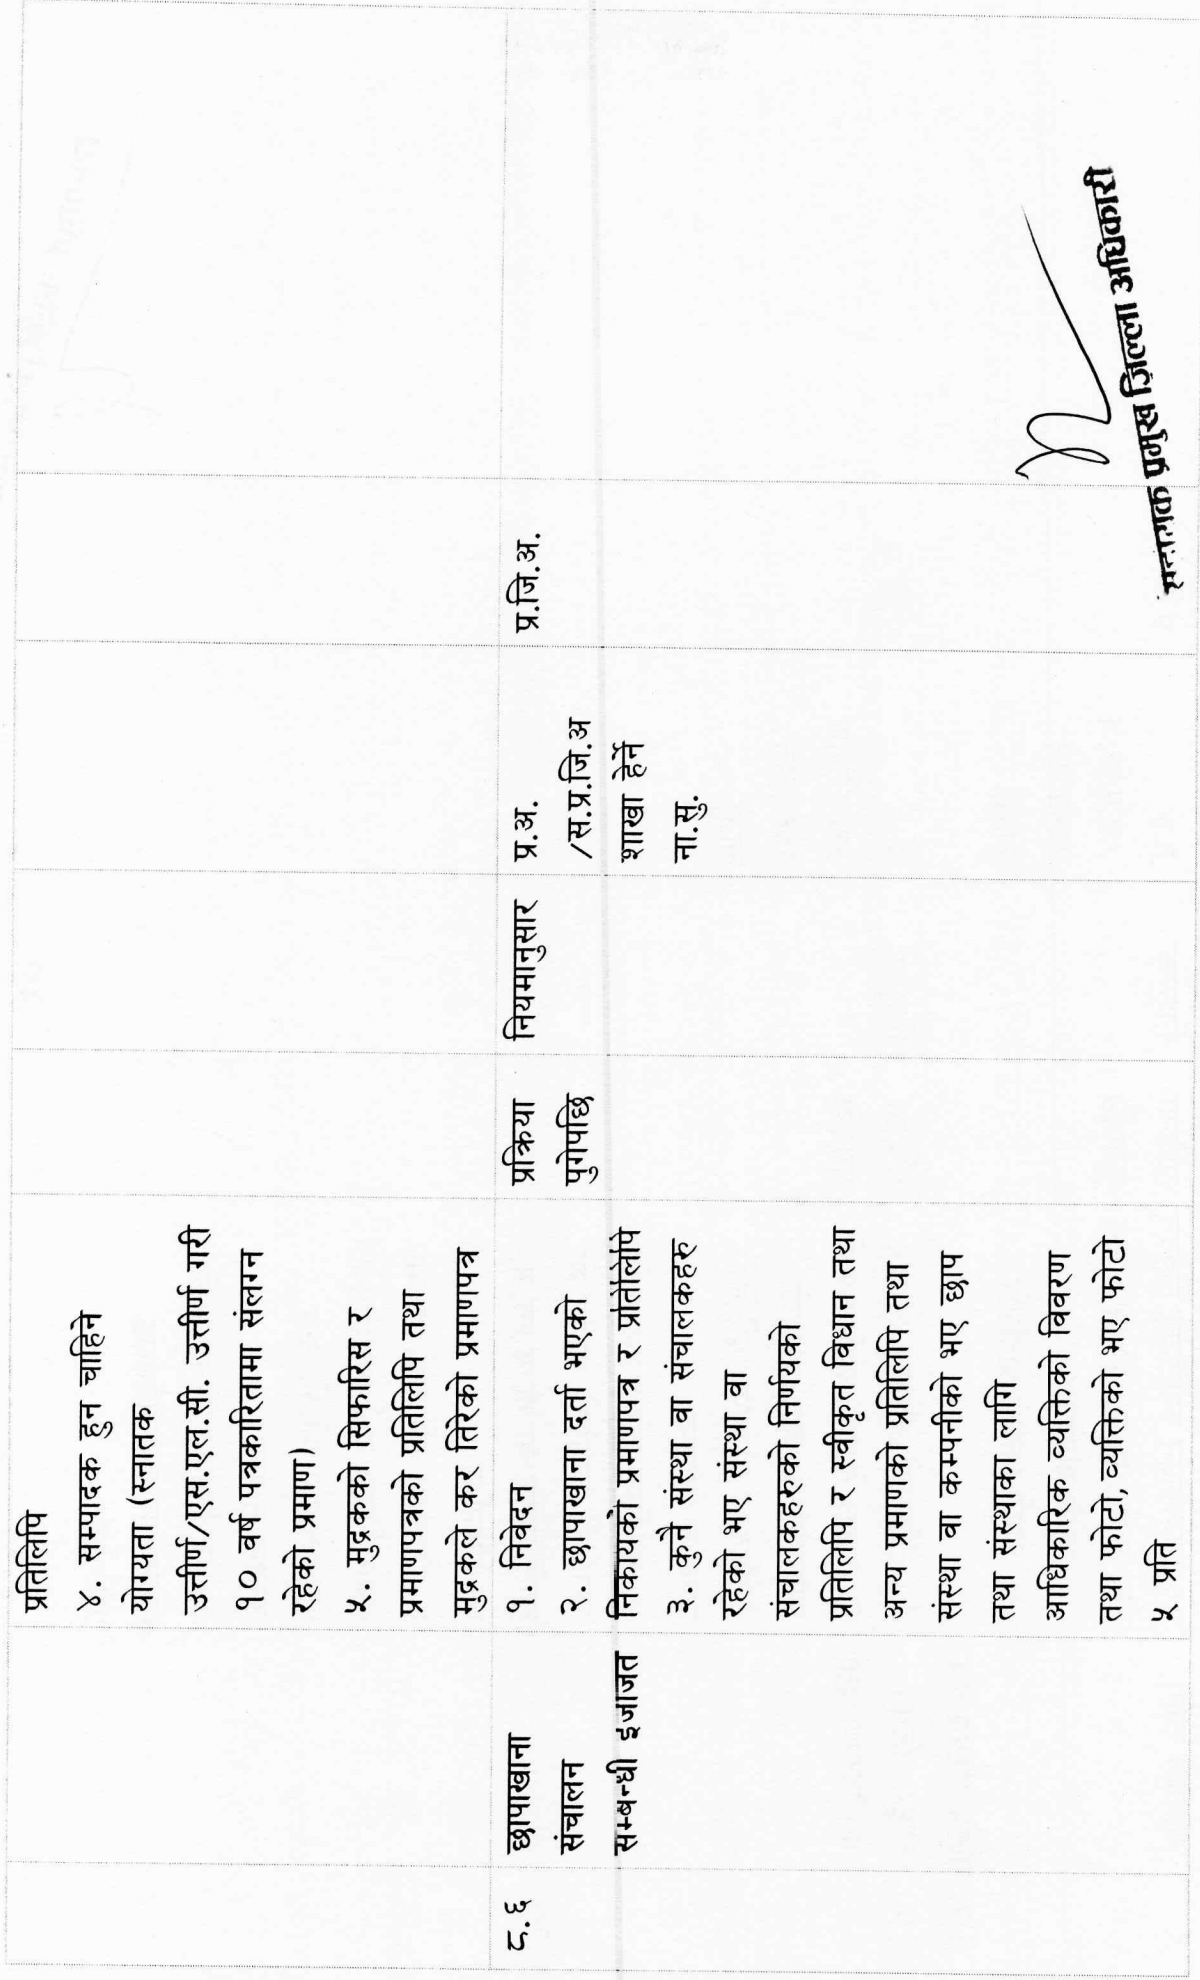 प्रतिलिपि
४. सम्पादक हुन चाहिने
योग्यता (स्नातक
उत्तीर्ण/एस.एल.सी. उत्तीर्ण गरी
१० वर्ष पत्रकारितामा संलग्न
रहेको प्रमाण)
५. मुद्रकको सिफारिस र
प्रमाणपत्रको प्रतिलिपि तथा
मुद्रकले कर तिरेको प्रमाणपत्र
८.६
छापाखाना
संचालन
सम्बन्धी इजाजत
१. निवेदन
२. छापाखाना दर्ता भएको
निकायको प्रमाणपत्र र प्रतिलिपि
३. कुनै संस्था वा संचालकहरु
रहेको भए संस्था वा
संचालकहरुको निर्णयको
प्रतिलिपि र स्वीकृत विधान तथा
अन्य प्रमाणको प्रतिलिपि तथा
संस्था वा कम्पनीको भए छाप
तथा संस्थाका लागि
आधिकारिक व्यक्तिको विवरण
तथा फोटो, व्यक्तिको भए फोटो
५ प्रति
प्रक्रिया
पुगेपछि
नियमानुसार
प्र.अ.
/स.प्र.जि.अ
शाखा हेर्ने
ना.सु.
प्र.जि.अ.
प्रमुख जिल्ला अधिकारी